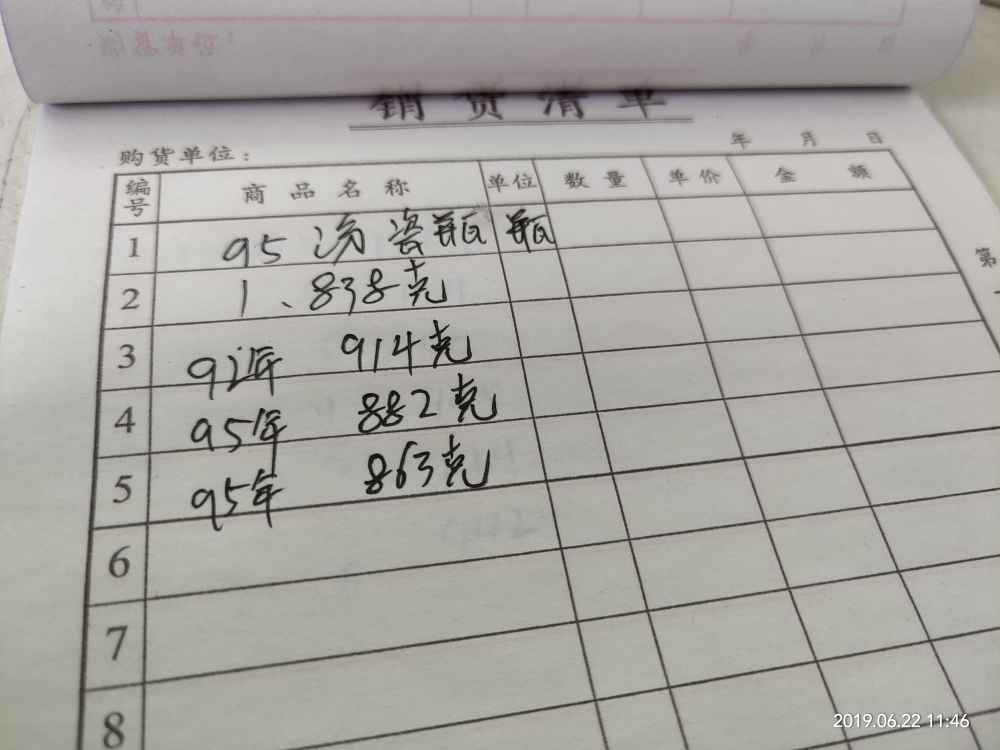 销货清单
购货单位： 年 月 日
编号 商品名称 单位 数量 单价 金额
1 95 汾瓷瓶 瓶
2 1、838克
3 92年 914克
4 95年 882克
5 95年 863克
6
7
8
第
2019.06.22 11:46